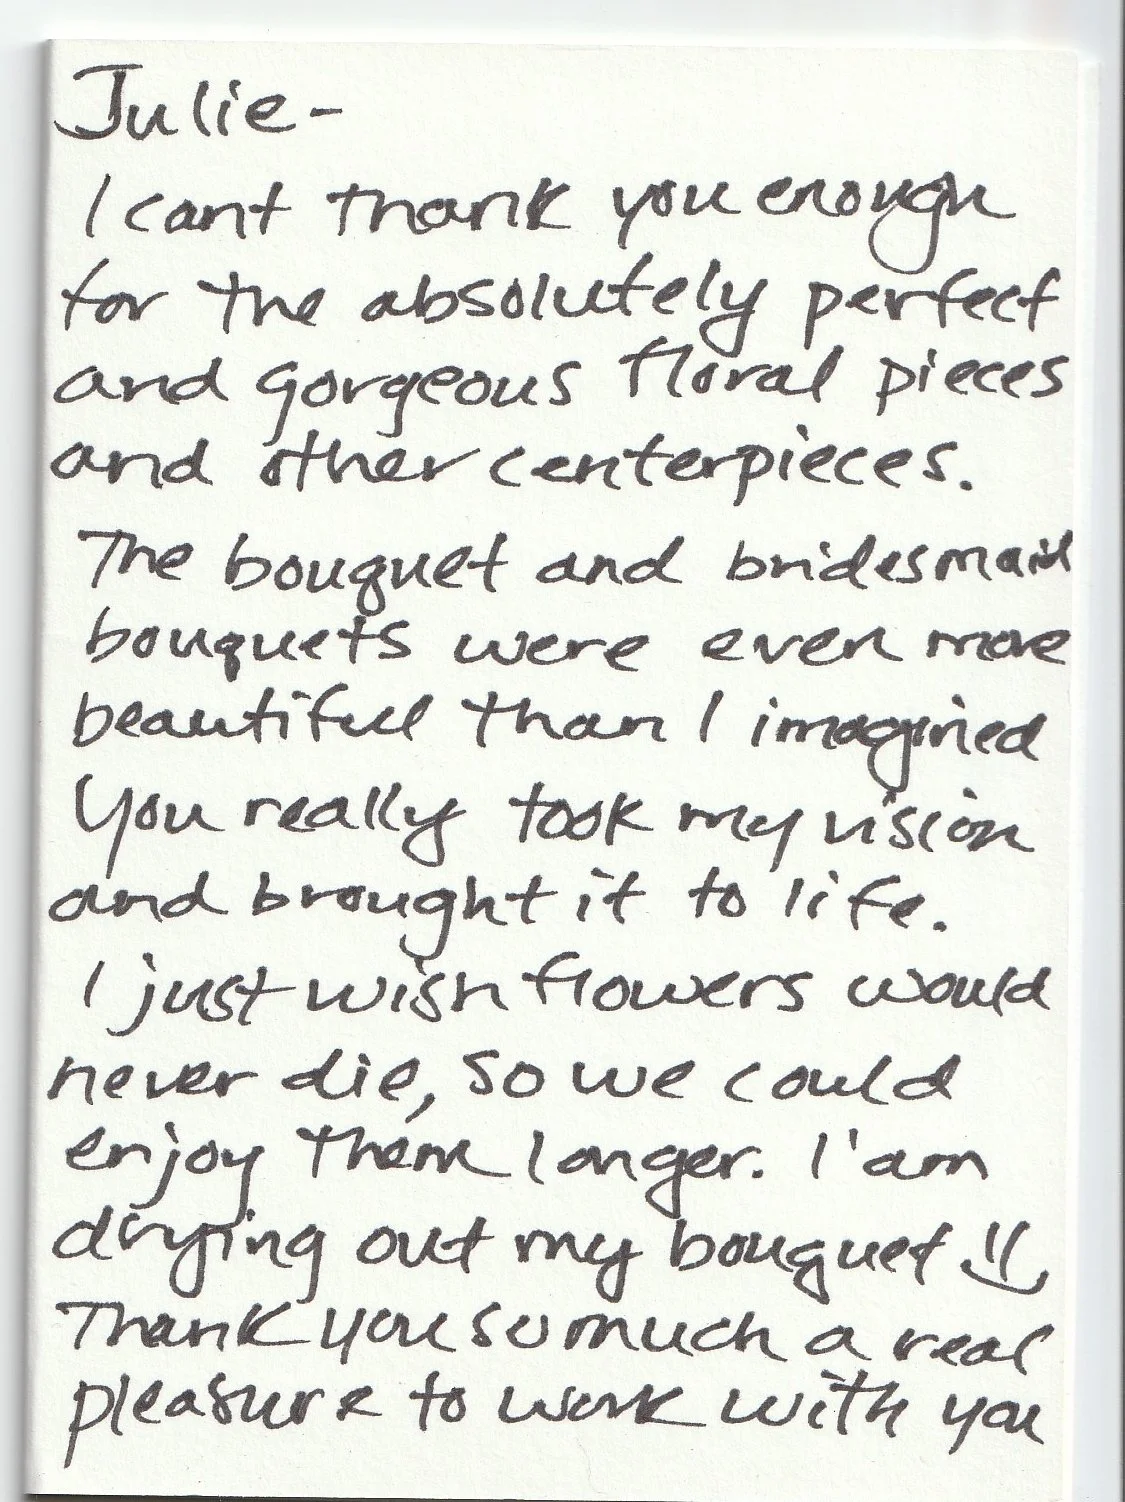 Julie-
I cant thank you enough
for the absolutely perfect
and gorgeous floral pieces
and other centerpieces.
The bouquet and bridesmaid
bouquets were even more
beautiful than I imagined
You really took my vision
and brought it to life.
I just wish flowers would
never die, so we could
enjoy them longer. I'am
drying out my bouquet
Thank you so much a real
pleasure to work with you